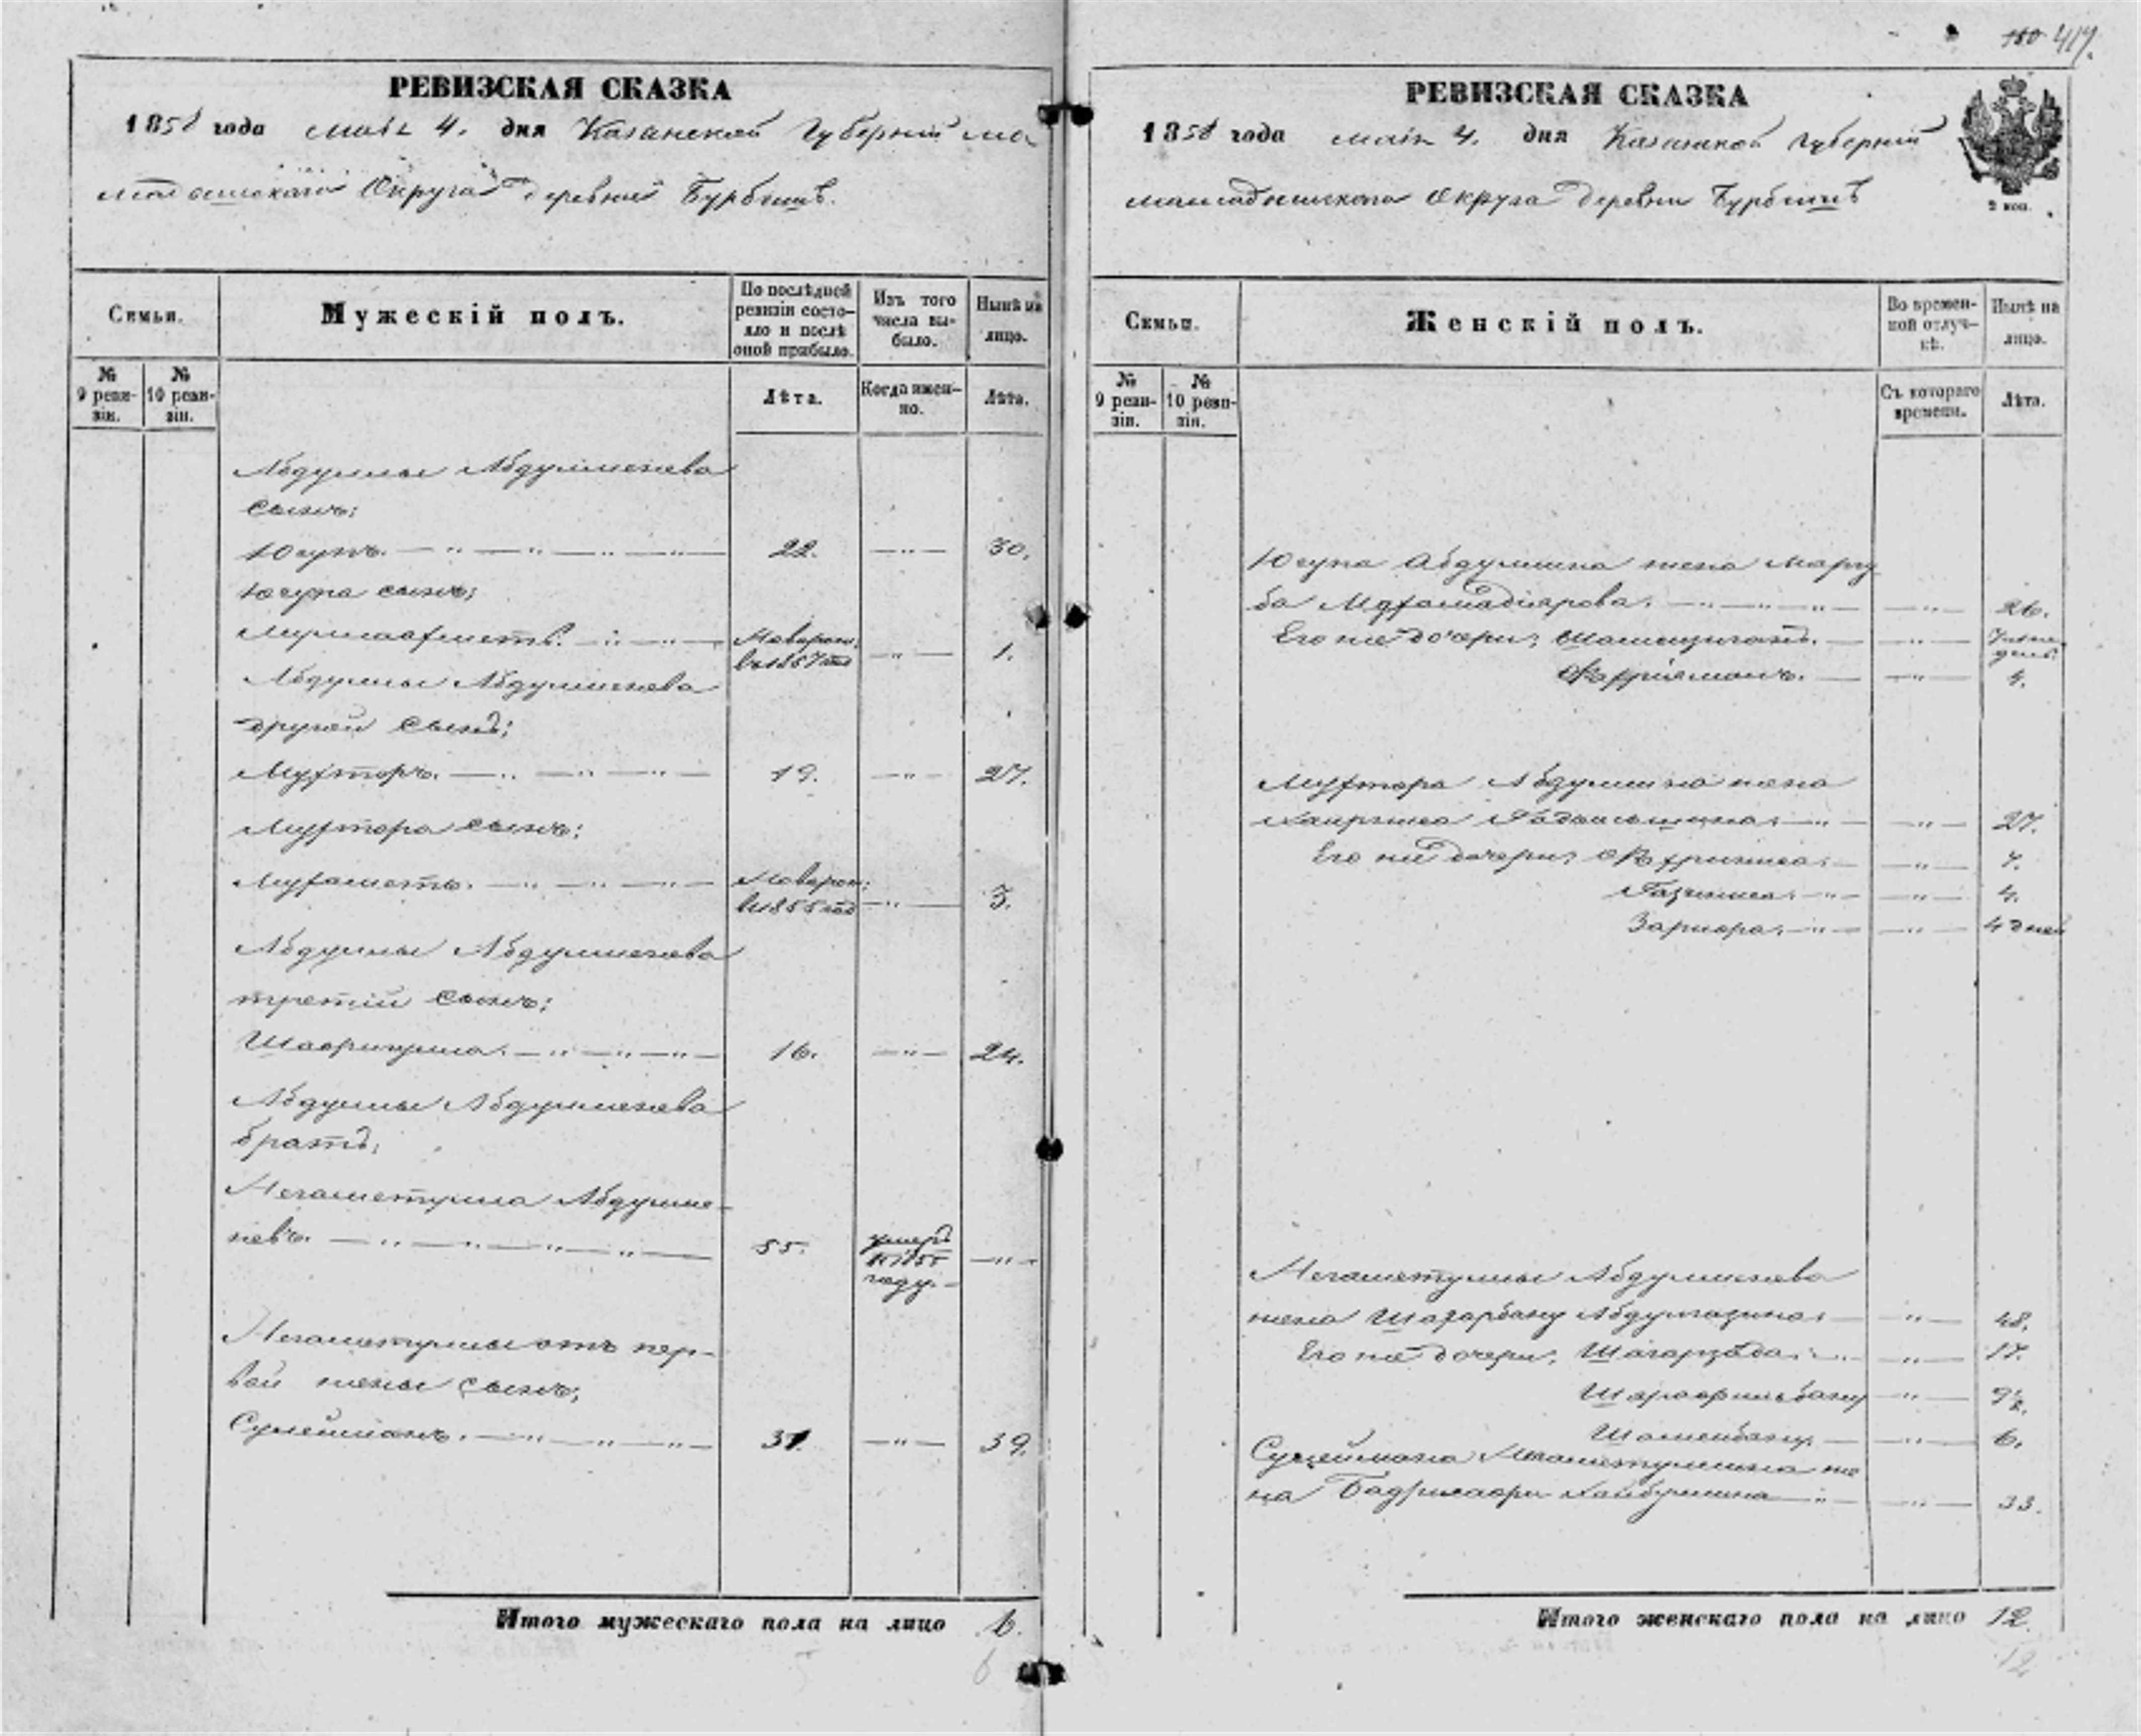 417.
РЕВИЗСКАЯ СКАЗКА
1858 года маія 4. дня Казанской Губерніи ма
Округа деревни Бурбашъ.
Семьи.
Мужескій полъ.
По послѣдней ревизіи состояло и послѣ оной прибыло.
Изъ того числа выбыло.
Нынѣ на лицо.
№ 9 ревизіи.
№ 10 ревизіи.
Лѣта.
Когда именно.
Лѣта.
Абдуллы Абдулменева
сынъ:
Юсупъ. 22. 30.
Юсупа сынъ;
Новорож: в 1857 год 1.
Абдуллы Абдулменева
другой сынъ;
Мухторъ. 19. 27.
Мухтора сынъ;
Мухаметъ. Новорож: в 1855 год 3.
Абдуллы Абдулменева
третій сынъ;
Шаафигулла. 16. 24.
Абдуллы Абдулменева
братъ;
Негаметулла Абдулме-
невъ. 55. умеръ в 1855 году.
Негаметуллы отъ пер-
вой жены сынъ;
Сулейманъ. 31. 39.
Итого мужескаго пола на лицо 6.
6
РЕВИЗСКАЯ СКАЗКА
1858 года маія 4. дня Казанской Губерніи
Мамадышскаго Округа деревни Бурбашъ
2 коп.
Семьи.
Женскій полъ.
Во временной отлучкѣ.
Нынѣ на лицо.
№ 9 ревизіи.
№ 10 ревизіи.
Съ котораго времени.
Лѣта.
Юсупа Абдуллина жена Маргу
ба 26.
Его же дочери;
4.
Мухтора Абдуллина жена
27.
Его же дочери; 7.
4.
4 дней
Негаметуллы Абдулменева
жена Шагарбану Абдулгазина: 48.
Его же дочери; Шагарзада: 17.
9½.
Шамсибану 6.
Сулеймана Негаметуллина же
на 33.
Итого женскаго пола на лицо 12.
12